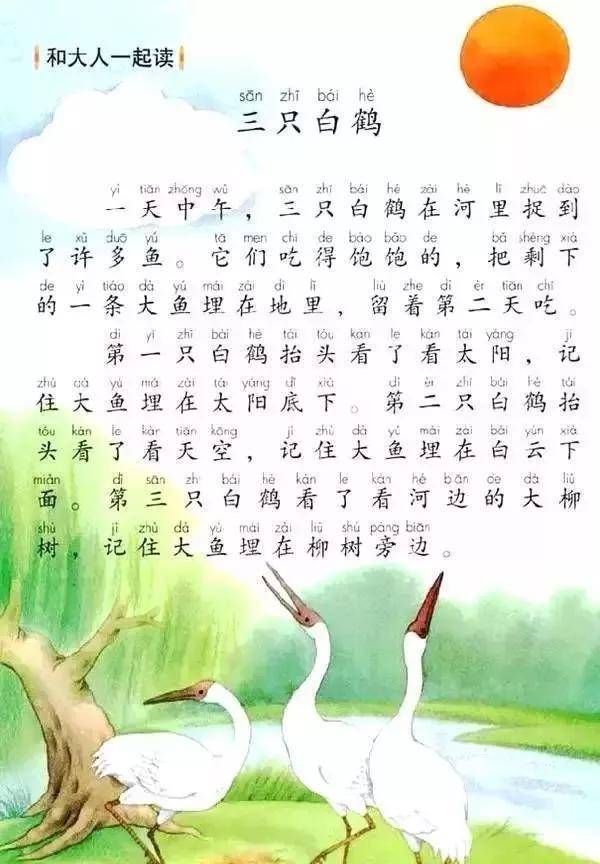 和大人一起读
sān zhī bái hè
三只白鹤
yì tiān zhōng wǔ sān zhī bái hè zài hé lǐ zhuō dào
一天中午，三只白鹤在河里捉到
le xǔ duō yú tā men chī de bǎo bǎo de bǎ shèng xià
了许多鱼。它们吃得饱饱的，把剩下
de yì tiáo dà yú mái zài dì lǐ liú zhe dì èr tiān chī
的一条大鱼埋在地里，留着第二天吃。
dì yī zhī bái hè tái tóu kàn le kàn tài yáng jì
第一只白鹤抬头看了看太阳，记
zhù dà yú mái zài tài yáng dǐ xià dì èr zhī bái hè tái
住大鱼埋在太阳底下。第二只白鹤抬
tóu kàn le kàn tiān kōng jì zhù dà yú mái zài bái yún xià
头看了看天空，记住大鱼埋在白云下
miàn dì sān zhī bái hè kàn le kàn hé biān de dà liǔ
面。第三只白鹤看了看河边的大柳
shù jì zhù dà yú mái zài liǔ shù páng biān
树，记住大鱼埋在柳树旁边。